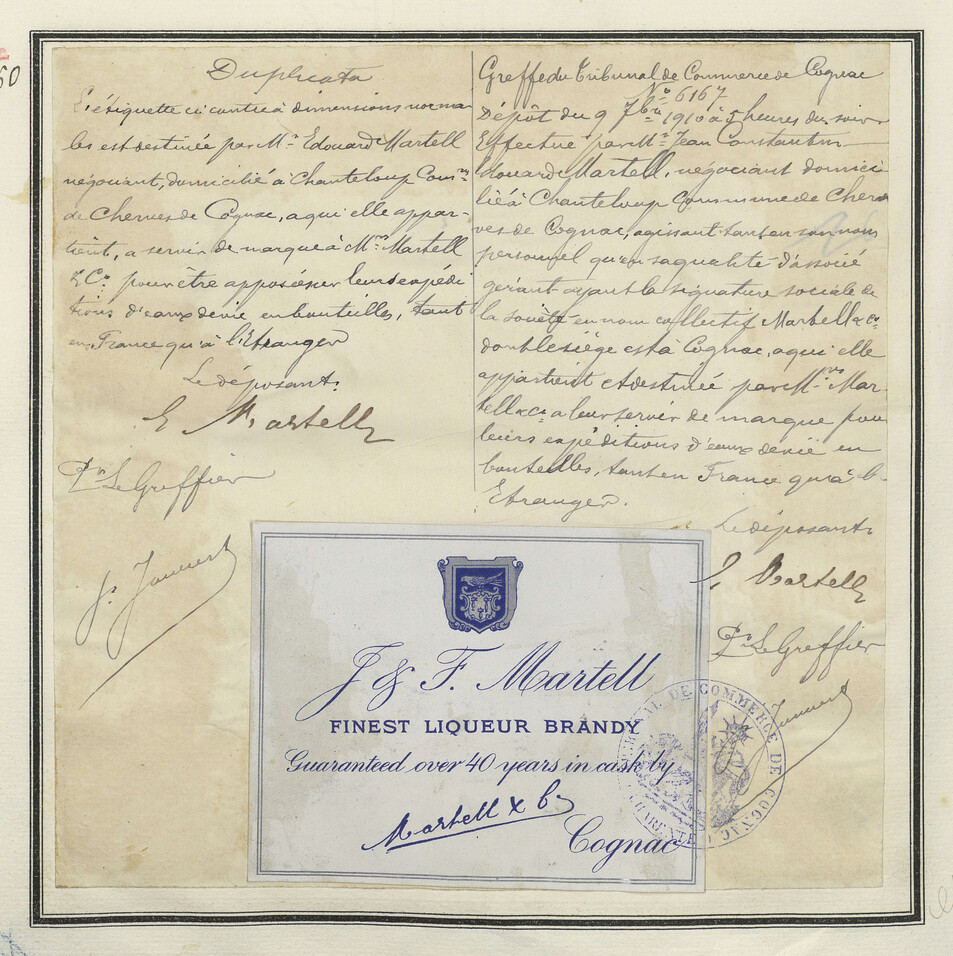 60
Duplicata
L'étiquette ci contre à dimensions norma
les est destinée par Mr. Edouard Martell
négociant, domicilié à Chanteloup Comne
de Cherves de Cognac, a qui elle appar-
tient, a servir de marque à Mrs Martell
& Co. pour être apposé sur leurs expédi
tions d'eaux de vie en bouteilles, tant
en France qu'à l'Etranger
Le déposant.
E Martell
Pr Le Greffier
Greffe du Tribunal de Commerce de Cognac
No 6167
Dépôt du 9 7bre 1910 à 5 heures du soir
Effectué par Mr. Jean Constantin
Edouard Martell, négociant domici
lié à Chanteloup Commune de Cher
ves de Cognac, agissant tant en son nom
personnel qu'en sa qualité d'associé
gérant ayant la signature sociale de
la société en nom collectif Martell & Co
dont le siège est à Cognac, a qui elle
appartient et destinée par Mrs Mar-
tell & Co a leur servir de marque pour
leurs expéditions d'eaux de vie en
bouteilles, tant en France qu'à l'
Etranger.
Le déposant
E Martell
Pr Le Greffier
J & F. Martell
FINEST LIQUEUR BRANDY
Guaranteed over 40 years in cask by
Martell & Co
Cognac
TRIBUNAL DE COMMERCE DE COGNAC
CHARENTE